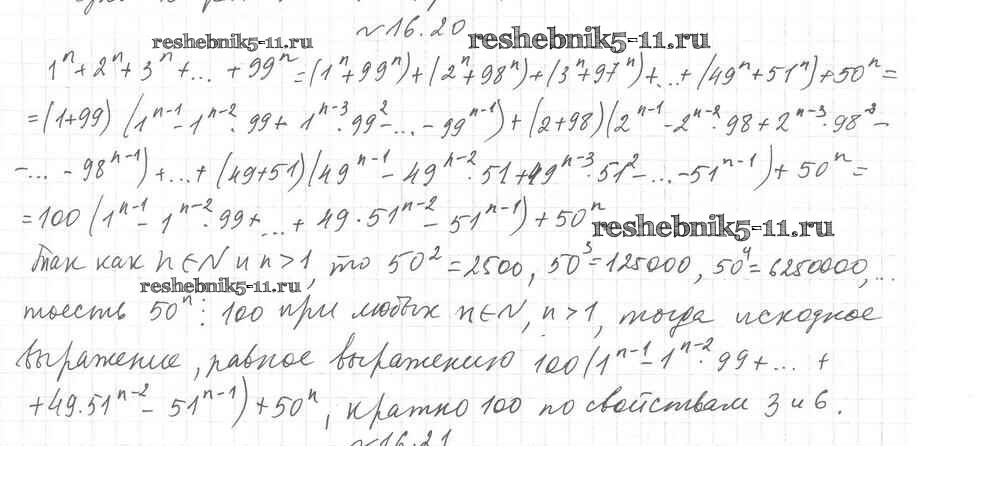 №16.20
reshebnik5-11.ru reshebnik5-11.ru
1ⁿ + 2ⁿ + 3ⁿ + ... + 99ⁿ = (1ⁿ + 99ⁿ) + (2ⁿ + 98ⁿ) + (3ⁿ + 97ⁿ) + ... + (49ⁿ + 51ⁿ) + 50ⁿ =
= (1+99) (1ⁿ⁻¹ - 1ⁿ⁻² · 99 + 1ⁿ⁻³ · 99² - ... - 99ⁿ⁻¹) + (2+98) (2ⁿ⁻¹ - 2ⁿ⁻² · 98 + 2ⁿ⁻³ · 98² -
- ... - 98ⁿ⁻¹) + ... + (49+51) (49ⁿ⁻¹ - 49ⁿ⁻² · 51 + 49ⁿ⁻³ · 51² - ... - 51ⁿ⁻¹) + 50ⁿ =
= 100 (1ⁿ⁻¹ - 1ⁿ⁻² · 99 + ... + 49 · 51ⁿ⁻² - 51ⁿ⁻¹) + 50ⁿ
reshebnik5-11.ru
Так как n ∈ N и n > 1, то 50² = 2500, 50³ = 125000, 50⁴ = 6250000, ...
reshebnik5-11.ru
тоесть 50ⁿ ⋮ 100 при любых n ∈ N, n > 1, тогда исходное
выражение, равное выражению 100 (1ⁿ⁻¹ - 1ⁿ⁻² · 99 + ... +
+ 49 · 51ⁿ⁻² - 51ⁿ⁻¹) + 50ⁿ, кратно 100 по свойствам 3 и 6.
№16.21